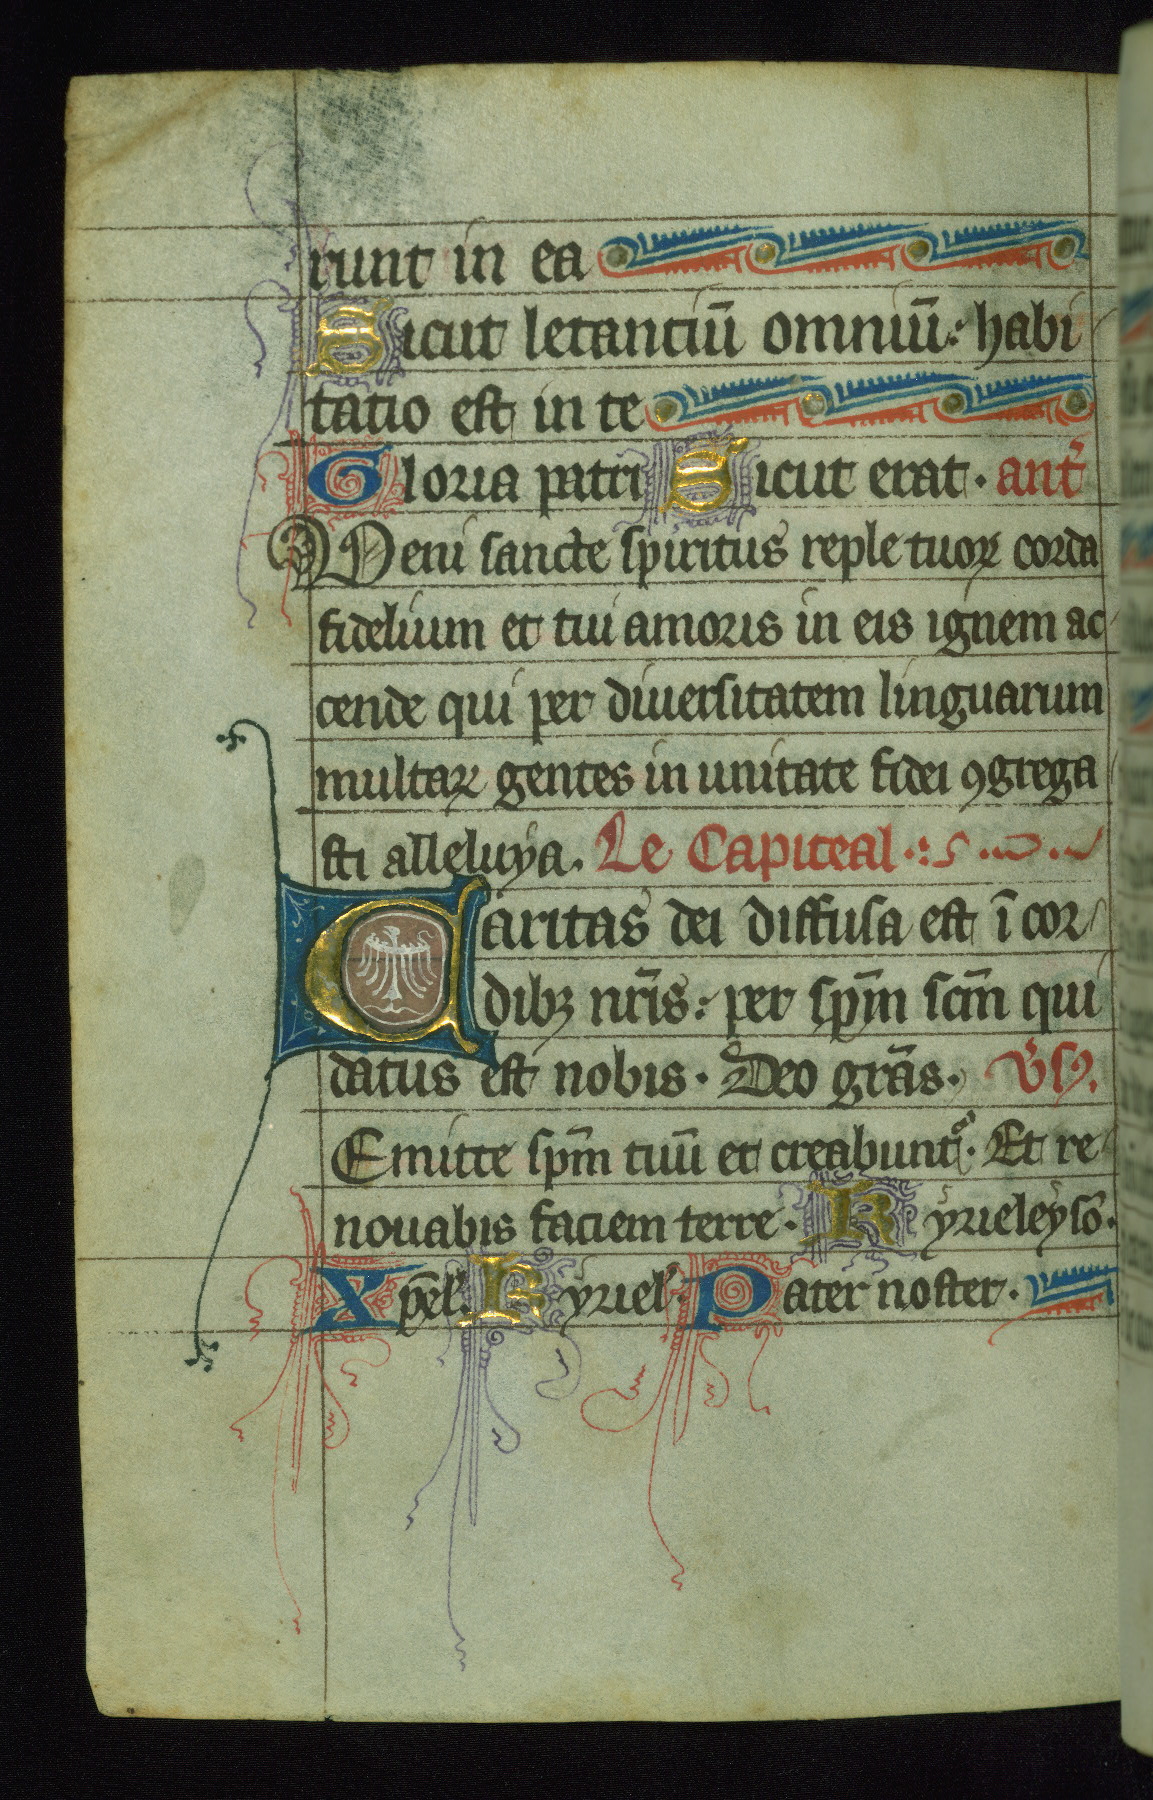 runt in ea
Sicut letantiū omniū: habi
tatio est in te
Gloria patri Sicut erat. ant̄
Veni sancte spiritus reple tuoꝝ corda
fidelium et tui amoris in eis ignem ac
cende qui per diuersitatem linguarum
multaꝝ gentes in unitate fidei ꝯgrega
sti alleluya. Le Capiteal
Caritas dei diffusa est ī cor
dibꝫ nr̄is: per sp̄m sc̄m qui
datus est nobis. Deo gr̄as. v̄sꝰ.
Emitte sp̄m tuū et creabunt᷑. Et re
nouabis faciem terre. Kyrieleysō.
Xp̄el. Kyriel. Pater noster.